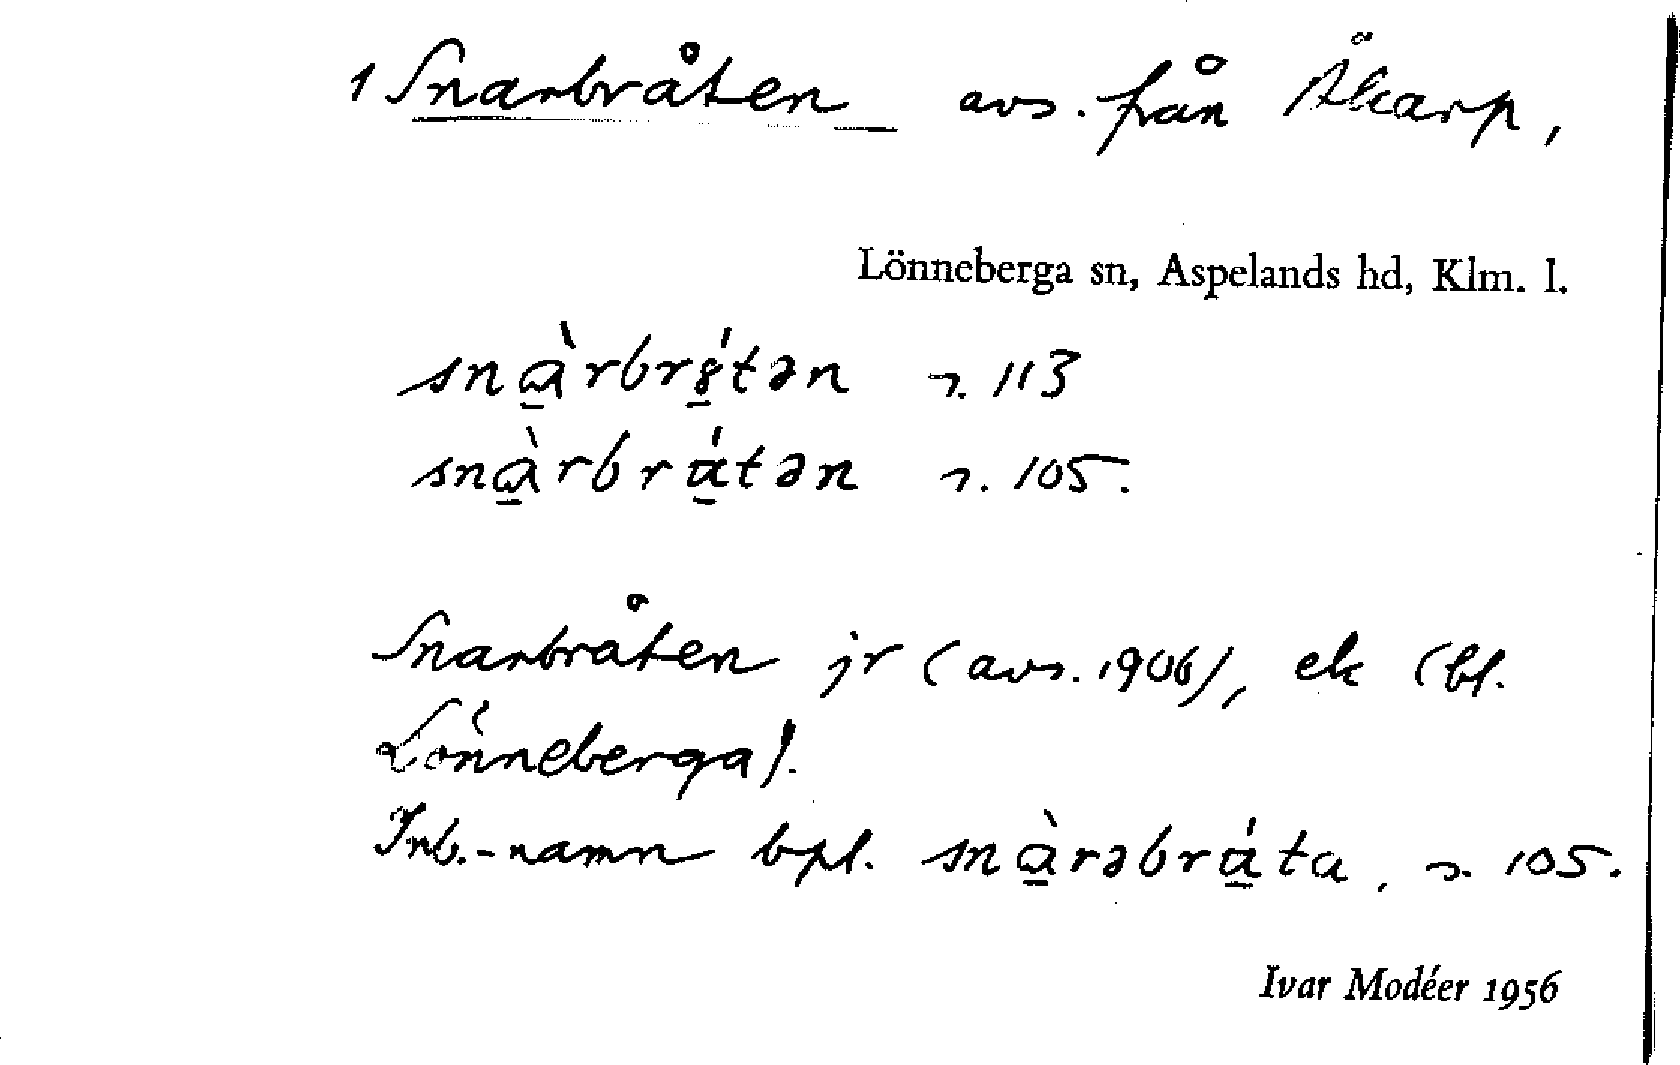 1 Snarbråten avs. från Åkarp,
Lönneberga sn, Aspelands hd, Klm. l.
sn<u>ɑ̀</u>rbr<u>ǻ</u>tən s. 113
sn<u>ɑ̀</u>rbr<u>á</u>tən s. 105.
Snarbråten jr (avs. 1906), ek (bl.
Lönneberga).
Inb.-namn bpl. sn<u>ɑ̀</u>rəbr<u>á</u>ta, s. 105.
Ivar Modéer 1956